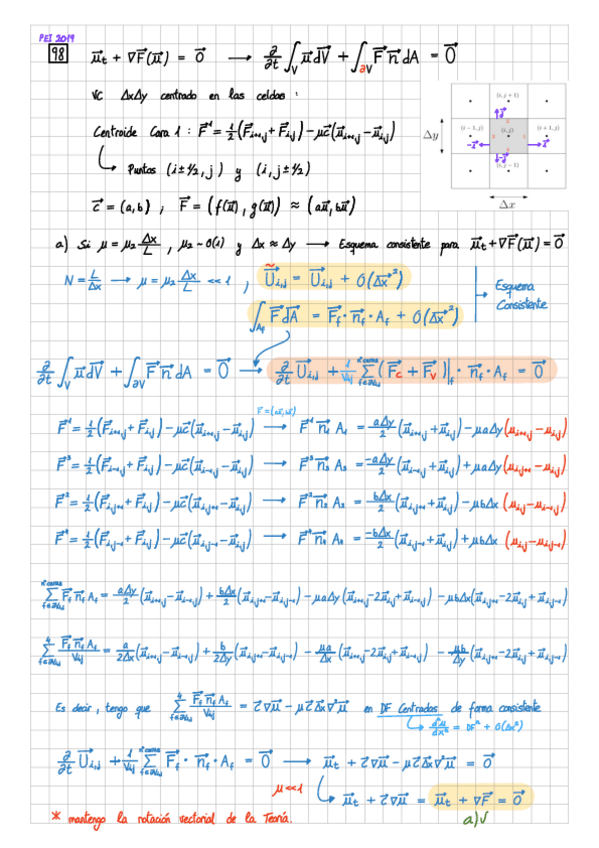 PEI 2019
98 $\vec{u}_t + \nabla \vec{F}(\vec{u}) = \vec{0}$ ⟶ $\frac{\partial}{\partial t}\int_V \vec{u} dV + \int_{\partial V} \vec{F}\vec{n} dA = \vec{0}$
VC ΔxΔy centrado en las celdas :
Centroide Cara 1 : $\vec{F}^1 = \frac{1}{2}(\vec{F}_{i+1,j} + \vec{F}_{i,j}) - \mu\vec{c}(\vec{u}_{i+1,j} - \vec{u}_{i,j})$
↳ Puntos (i ± 1/2, j) y (i, j ± 1/2)
$\vec{c} = (a, b)$ ; $\vec{F} = (f(\vec{u}), g(\vec{u})) \approx (a\vec{u}, b\vec{u})$
(i, j + 1)
(i − 1, j) (i, j) (i + 1, j)
(i, j − 1)
Δy
Δx
a) Si $\mu = \mu_2 \frac{\Delta x}{L}$, $\mu_2 \sim O(1)$ y Δx ≈ Δy ⟶ Esquema consistente para $\vec{u}_t + \nabla \vec{F}(\vec{u}) = \vec{0}$
$N = \frac{L}{\Delta x}$ ⟶ $\mu = \mu_2 \frac{\Delta x}{L} << 1$ , $\tilde{\vec{U}}_{i,j} = \vec{U}_{i,j} + O(\vec{\Delta x}^2)$
$\int_{A_f} \vec{F} \vec{dA} = \vec{F}_f \cdot \vec{n}_f \cdot A_f + O(\vec{\Delta x}^2)$
Esquema
Consistente
$\frac{\partial}{\partial t}\int_V \vec{u} dV + \int_{\partial V} \vec{F}\vec{n} dA = \vec{0}$ ⟶ $\frac{\partial}{\partial t}\vec{U}_{i,j} + \frac{1}{V_{ij}}\sum_{f \in \partial V_{ij}}^{nº caras} (\vec{F}_c + \vec{F}_v)|_f \cdot \vec{n}_f \cdot A_f = \vec{0}$
$\vec{F} = (a\vec{u}, b\vec{u})$
$\vec{F}^1 = \frac{1}{2}(\vec{F}_{i+1,j} + \vec{F}_{i,j}) - \mu\vec{c}(\vec{u}_{i+1,j} - \vec{u}_{i,j})$ ⟶ $\vec{F}^1 \vec{n}_1 A_1 = \frac{a\Delta y}{2}(\vec{u}_{i+1,j} + \vec{u}_{i,j}) - \mu a\Delta y(u_{i+1,j} - u_{i,j})$
$\vec{F}^3 = \frac{1}{2}(\vec{F}_{i-1,j} + \vec{F}_{i,j}) - \mu\vec{c}(\vec{u}_{i-1,j} - \vec{u}_{i,j})$ ⟶ $\vec{F}^3 \vec{n}_3 A_3 = \frac{-a\Delta y}{2}(\vec{u}_{i-1,j} + \vec{u}_{i,j}) + \mu a\Delta y$
$\vec{F}^2 = \frac{1}{2}(\vec{F}_{i,j+1} + \vec{F}_{i,j}) - \mu\vec{c}(\vec{u}_{i,j+1} - \vec{u}_{i,j})$ ⟶ $\vec{F}^2 \vec{n}_2 A_2 = \frac{b\Delta x}{2}(\vec{u}_{i,j+1} + \vec{u}_{i,j}) - \mu b\Delta x$
$\vec{F}^4 = \frac{1}{2}(\vec{F}_{i,j-1} + \vec{F}_{i,j}) - \mu\vec{c}(\vec{u}_{i,j-1} - \vec{u}_{i,j})$ ⟶ $\vec{F}^4 \vec{n}_4 A_4 = \frac{-b\Delta x}{2}(\vec{u}_{i,j-1} + \vec{u}_{i,j}) + \mu b\Delta x (u_{i,j} - u_{i,j-1})$
$\sum_{f \in \partial V_{ij}}^{nº caras} \vec{F}_f \vec{n}_f A_f = \frac{a\Delta y}{2}(\vec{u}_{i+1,j} - \vec{u}_{i-1,j}) + \frac{b\Delta x}{2}(\vec{u}_{i,j+1} - \vec{u}_{i,j-1}) - \mu a\Delta y(\vec{u}_{i+1,j} - 2\vec{u}_{i,j} + \vec{u}_{i-1,j}) - \mu b\Delta x(\vec{u}_{i,j+1} - 2\vec{u}_{i,j} + \vec{u}_{i,j-1})$
$\sum_{f \in \partial V_{ij}}^{4} \frac{\vec{F}_f \vec{n}_f A_f}{V_{ij}} = \frac{a}{2\Delta x}(\vec{u}_{i+1,j} - \vec{u}_{i-1,j}) + \frac{b}{2\Delta y}(\vec{u}_{i,j+1} - \vec{u}_{i,j-1}) - \frac{\mu a}{\Delta x}(\vec{u}_{i+1,j} - 2\vec{u}_{i,j} + \vec{u}_{i-1,j}) - \frac{\mu b}{\Delta y}(\vec{u}_{i,j+1} - 2\vec{u}_{i,j} + \vec{u}_{i,j-1})$
Es decir, tengo que $\sum_{f \in \partial V_{ij}}^{4} \frac{\vec{F}_f \vec{n}_f A_f}{V_{ij}} = \vec{c}\nabla\vec{u} - \mu\vec{c}\vec{\Delta x}\nabla^2\vec{u}$ en DF Centradas de forma consistente
↳ $\frac{d^2u}{dx^2} = DF^n + O(\Delta x^2)$
$\frac{\partial}{\partial t}\vec{U}_{i,j} + \frac{1}{V_{ij}}\sum_{f \in \partial V_{ij}}^{nº caras} \vec{F}_f \cdot \vec{n}_f \cdot A_f = \vec{0}$ ⟶ $\vec{u}_t + \vec{c}\nabla\vec{u} - \mu\vec{c}\vec{\Delta x}\nabla^2\vec{u} = \vec{0}$
μ<<1 ↳ $\vec{u}_t + \vec{c}\nabla\vec{u} = \vec{u}_t + \nabla\vec{F} = \vec{0}$
* mantengo la notación vectorial de la Teoría. a)√